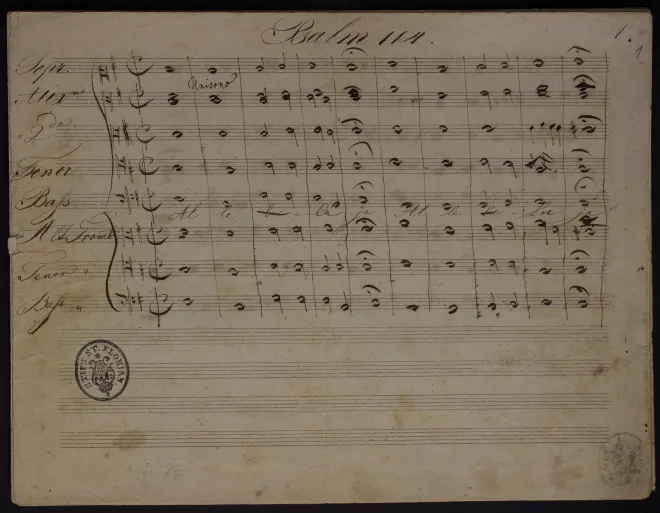 Psalm 114.
1.
Sopr.
Unisono
Alt 1mo
" 2do
Tenor
Bass
Al le lu ja Al le lu ja
Alt Tromb
Tenor "
Bass "
STIFT ST. FLORIAN